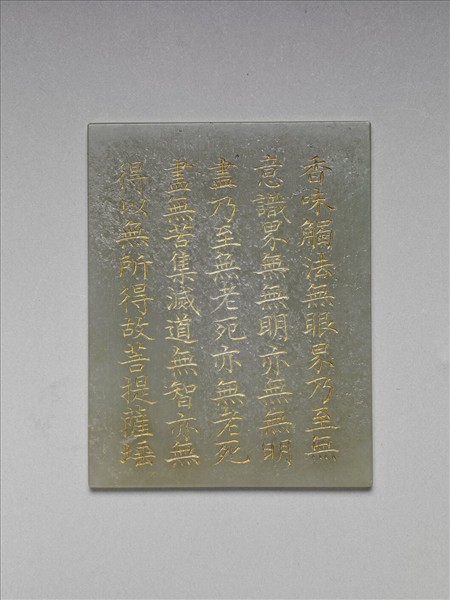 香味觸法無眼界乃至無
意識界無無明亦無無明
盡乃至無老死亦無老死
盡無苦集滅道無智亦無
得以無所得故菩提薩埵